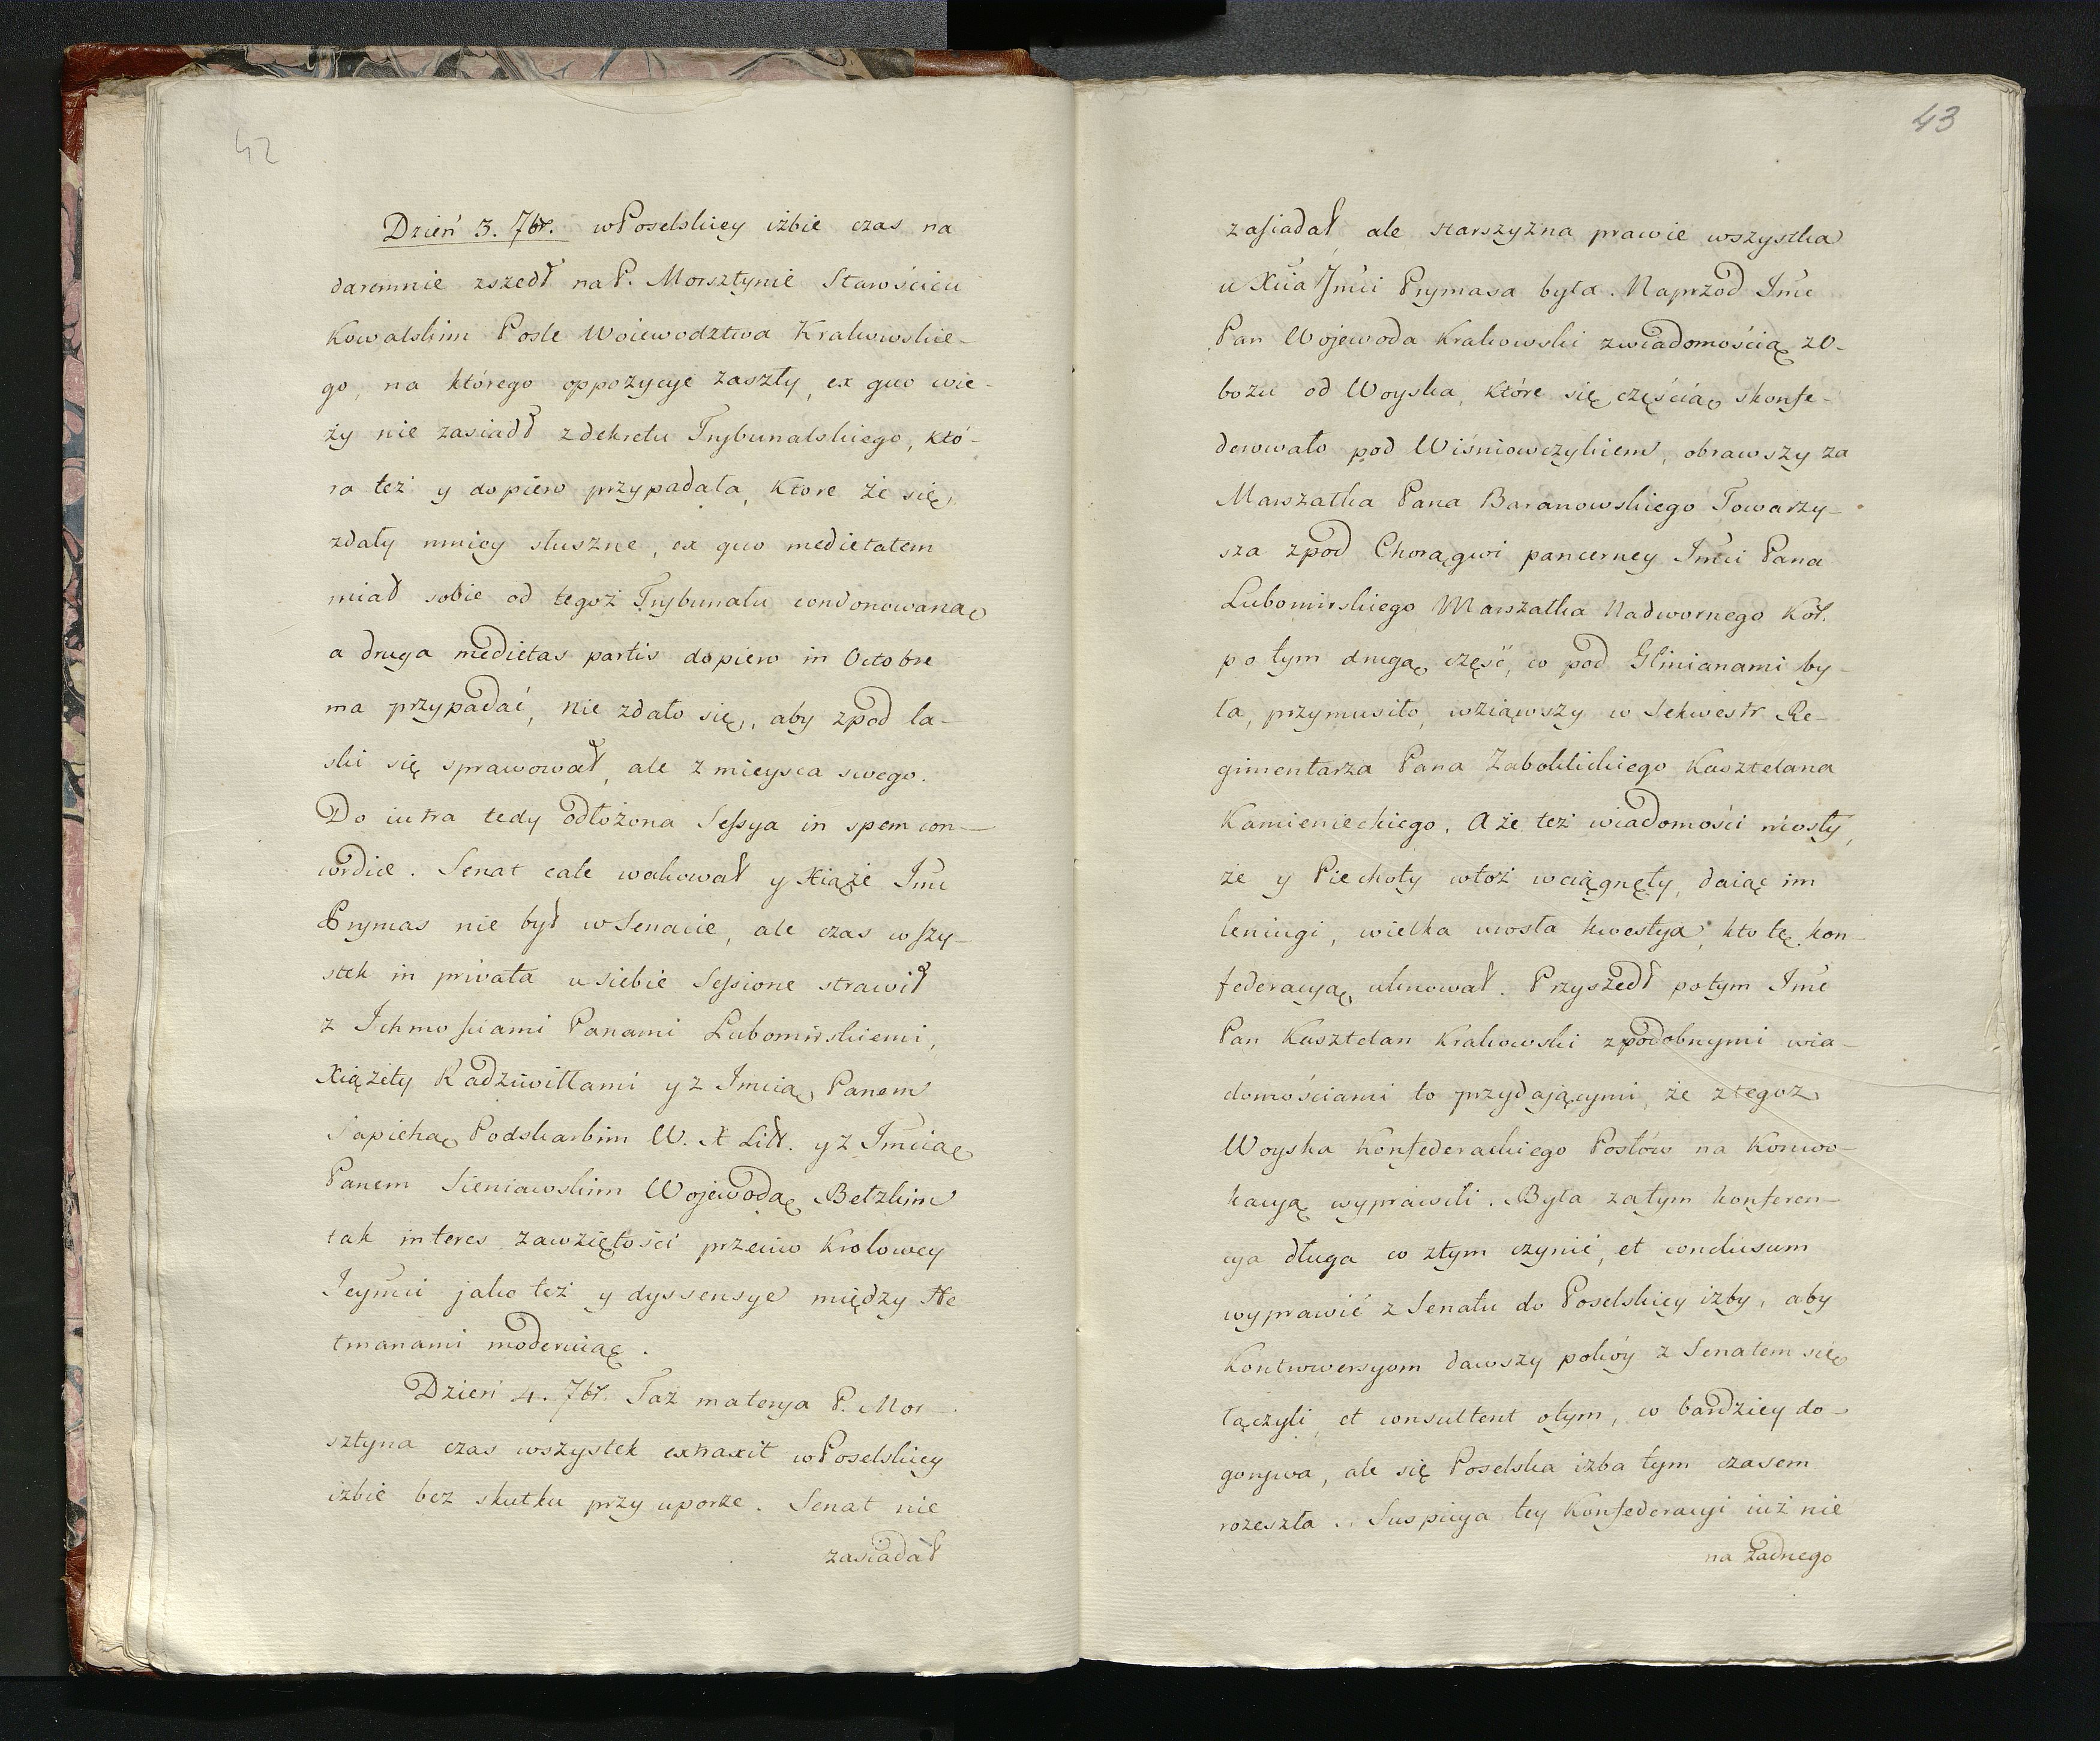 42
Dzień 3. 7br. w Poselskiey iżbie czas na
daremnie zszedł na P. Morsztynie Starościcu
Kowalskim Pośle Woiewodztwa Krakowskie-
go, na którego oppozycye zaszły, ex quo wie-
ży nie zasiadł z dekretu Trybunalskiego, któ-
ra też y dopiero przypadała, które że się
zdały mniey słuszne, ex quo medietatem
miał sobie od tegoż Trybunału condonowaną
a druga medietas partis dopiero in Octobre
ma przypadać, nie zdało się, aby zpod la-
ski się sprawował, ale z mieysca swego.
Do iutra tedy odłożona Sessya in spem con-
cordiae. Senat cale wakował y Xiąże Jmć
Prymas nie był w Senacie, ale czas wszy-
stek in privata u siebie Sessione strawił
z Ichmościami Panami Lubomirskiemi,
Xiążęty Radziwiłłami y z Jmcią Panem
Sapiehą Podskarbim W. X Litt. y z Jmcią
Panem Sieniawskim Wojewodą Bełzkim
tak interes zawziętości przeciw Krolowey
Jeymci jako też y dyssensye między He
tmanami moderuiąc.
Dzień 4. 7br. Taż materya P. Mor-
sztyna czas wszystek extraxit w Poselskiey
iżbie bez skutku przy uporze. Senat nie
zasiadał
43
zasiadał, ale starszyzna prawie wszystka
u Xcia Jmci Prymasa była. Naprzod Jmć
Pan Wojewoda Krakowski z wiadomością z O-
bozu od Woyska, które się częścią skonfe-
derowało pod Wiśniowczykiem, obrawszy za
Marszałka Pana Baranowskiego Towarzy-
sza zpod Chorągwi pancerney Jmci Pana
Lubomirskiego Marszałka Nadwornego Kor.
potym drugą część, co pod Glinianami by-
ła, przymusiło, wziąwszy w Sekwestr Re-
gimentarza Pana Zabokllickiego Kasztelana
Kamienieckiego. A że też wiadomości niosły,
że y Piechoty wtoż wciągnęły, daiąc im
leniugi, wielka urosła kwestya, kto tę kon-
federacyą uknował. Przyszedł potym Jmć
Pan Kasztelan Krakowski z podobnymi wia-
domościami to przydającymi, że z tegoż
Woyska Konfederackiego Posłów na Konwo-
kacyą wyprawili. Była zatym konferen-
cya długa co z tym czynić, et conclusum
wyprawić z Senatu do Poselskiey izby, aby
Kontrowersyom dawszy pokóy z Senatem się
łączyli et consultent o tym, co bardziey do-
gorywa, ale się Poselska izba tym czasem
rozeszła. Suspicya tey Konfederacyi iuż nie
na żadnego